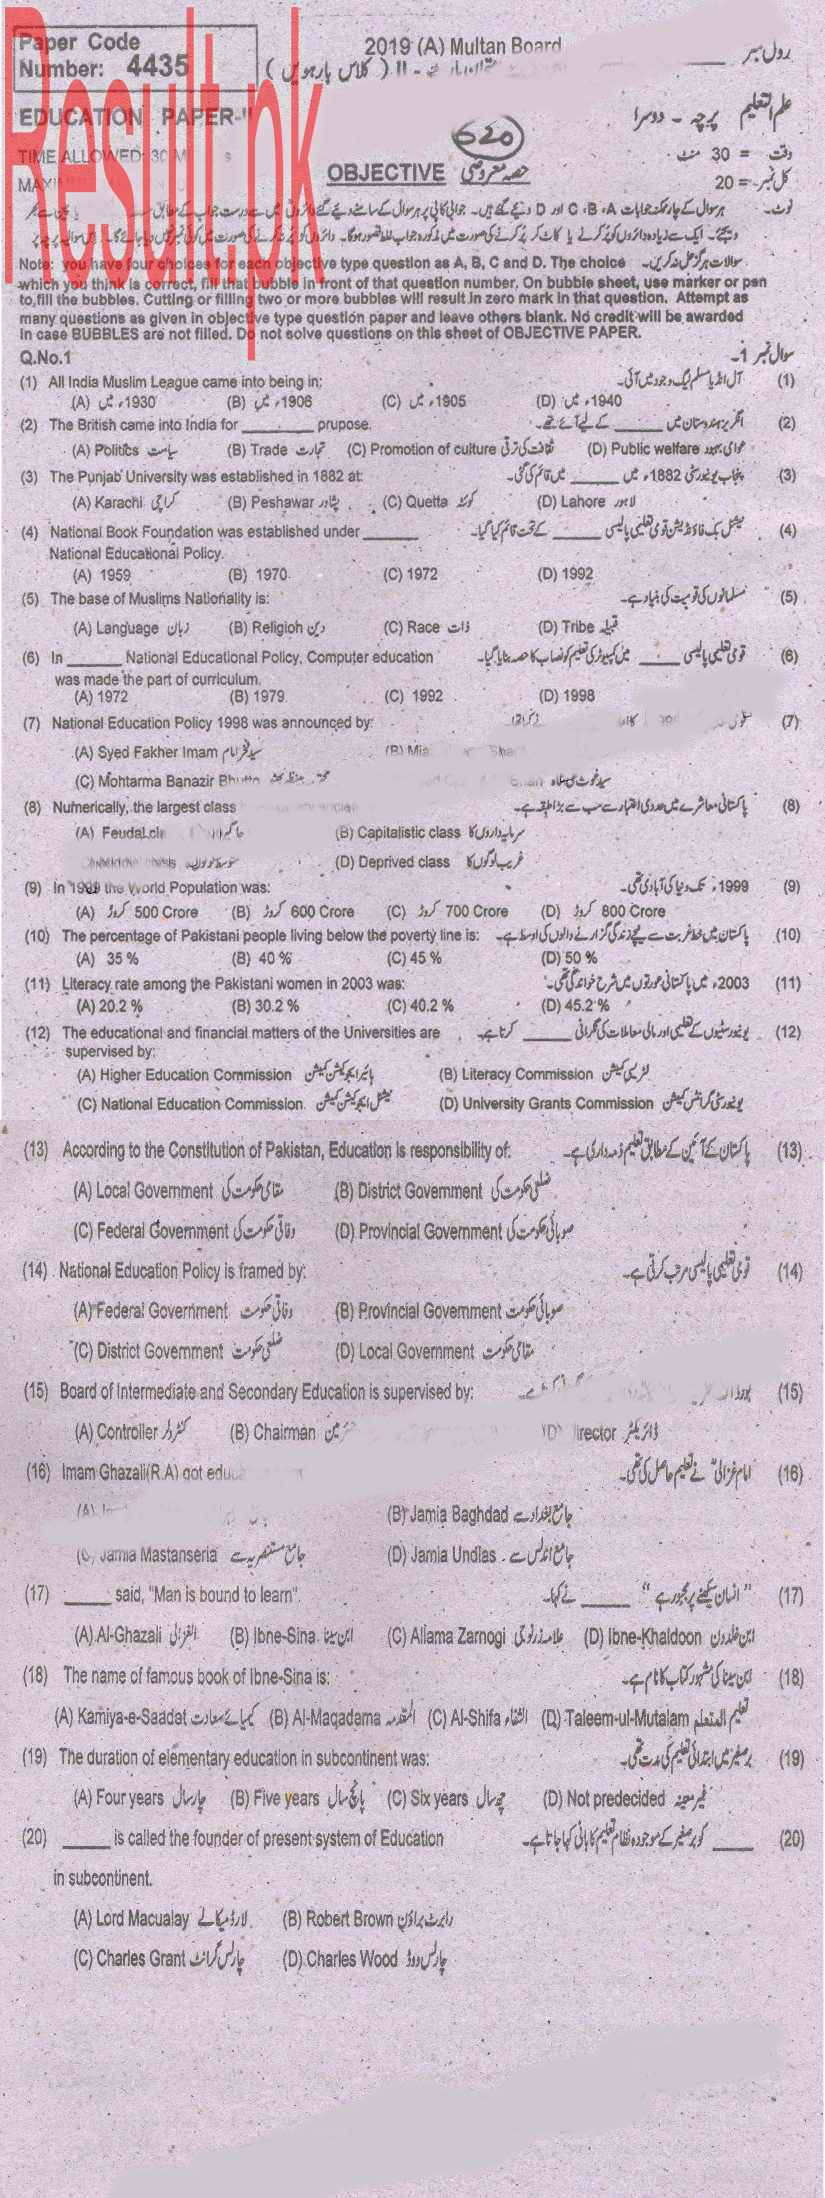 Result.pk
Paper Code
Number: 4435
2019 (A) Multan Board
رول نمبر
(کلاس بارہویں) II -
EDUCATION PAPER-II
علم التعلیم پرچہ ۔ دوسرا
TIME ALLOWED: 30
وقت = 30 منٹ
OBJECTIVE حصہ معروضی
کل نمبر = 20
نوٹ۔ ہر سوال کے چار ممکنہ جوابات A، B، C اور D دیئے گئے ہیں۔ جوابی کاپی پر ہر سوال کے سامنے دیئے گئے دائروں میں سے درست جواب کے مطابق
دیجئے۔ ایک سے زیادہ دائروں کو پُر کرنے یا کاٹ کر پُر کرنے کی صورت میں مذکورہ جواب غلط تصور ہوگا۔ دائروں کو پُر نہ کرنے کی صورت میں کوئی نمبر نہیں دیا جائے گا۔ اس سوالیہ پرچہ پر
سوالات ہرگز حل نہ کریں۔
Note: you have four choices for each objective type question as A, B, C and D. The choice
which you think is correct, fill that bubble in front of that question number. On bubble sheet, use marker or pen
to fill the bubbles. Cutting or filling two or more bubbles will result in zero mark in that question. Attempt as
many questions as given in objective type question paper and leave others blank. No credit will be awarded
in case BUBBLES are not filled. Do not solve questions on this sheet of OBJECTIVE PAPER.
Q.No.1 سوال نمبر 1۔
(1) All India Muslim League came into being in: آل انڈیا مسلم لیگ وجود میں آئی۔ (1)
(A) 1930ء میں (B) 1906ء میں (C) 1905ء میں (D) 1940ء میں
(2) The British came into India for ________ prupose. انگریز ہندوستان میں ______ کے لیے آئے تھے۔ (2)
(A) Politics سیاست (B) Trade تجارت (C) Promotion of culture ثقافت کی ترقی (D) Public welfare عوامی بہبود
(3) The Punjab University was established in 1882 at: پنجاب یونیورسٹی 1882ء میں ______ میں قائم کی گئی۔ (3)
(A) Karachi کراچی (B) Peshawar پشاور (C) Quetta کوئٹہ (D) Lahore لاہور
(4) National Book Foundation was established under ______ نیشنل بک فاؤنڈیشن قومی تعلیمی پالیسی ______ کے تحت قائم کیا گیا۔ (4)
National Educational Policy.
(A) 1959 (B) 1970 (C) 1972 (D) 1992
(5) The base of Muslims Nationality is: مسلمانوں کی قومیت کی بنیاد ہے۔ (5)
(A) Language زبان (B) Religioh دین (C) Race ذات (D) Tribe قبیلہ
(6) In ______ National Educational Policy, Computer education قومی تعلیمی پالیسی ____ میں کمپیوٹر کی تعلیم کو نصاب کا حصہ بنایا گیا۔ (6)
was made the part of curriculum.
(A) 1972 (B) 1979 (C) 1992 (D) 1998
(7) National Education Policy 1998 was announced by: (7)
(A) Syed Fakher Imam سید فخر امام (B)
(C) Mohtarma Banazir Bhutto محترمہ بینظیر بھٹو سید غوث علی شاہ
(8) Numerically, the largest class پاکستانی معاشرے میں عددی اعتبار سے سب سے بڑا طبقہ ہے۔ (8)
(A) Feudal (B) Capitalistic class سرمایہ داروں کا
(D) Deprived class غریب لوگوں کا
(9) In 1999 the World Population was: 1999ء تک دنیا کی آبادی تھی۔ (9)
(A) کروڑ 500 Crore (B) کروڑ 600 Crore (C) کروڑ 700 Crore (D) کروڑ 800 Crore
(10) The percentage of Pakistani people living below the poverty line is: پاکستان میں خط غربت سے نیچے زندگی گزارنے والوں کی اوسط ہے۔ (10)
(A) 35 % (B) 40 % (C) 45 % (D) 50 %
(11) Literacy rate among the Pakistani women in 2003 was: 2003ء میں پاکستانی عورتوں میں شرح خواندگی تھی۔ (11)
(A) 20.2 % (B) 30.2 % (C) 40.2 % (D) 45.2 %
(12) The educational and financial matters of the Universities are یونیورسٹیوں کے تعلیمی اور مالی معاملات کی نگرانی ______ کرتا ہے۔ (12)
supervised by:
(A) Higher Education Commission ہائیر ایجوکیشن کمیشن (B) Literacy Commission لٹریسی کمیشن
(C) National Education Commission. نیشنل ایجوکیشن کمیشن (D) University Grants Commission یونیورسٹی گرانٹس کمیشن
(13) According to the Constitution of Pakistan, Education is responsibility of: پاکستان کے آئین کے مطابق تعلیم ذمہ داری ہے۔ (13)
(A) Local Government مقامی حکومت کی (B) District Government ضلعی حکومت کی
(C) Federal Government وفاقی حکومت کی (D) Provincial Government صوبائی حکومت کی
(14) National Education Policy is framed by: قومی تعلیمی پالیسی مرتب کرتی ہے۔ (14)
(A) Federal Government وفاقی حکومت (B) Provincial Government صوبائی حکومت
(C) District Government ضلعی حکومت (D) Local Government مقامی حکومت
(15) Board of Intermediate and Secondary Education is supervised by: (15)
(A) Controller کنٹرولر (B) Chairman چیئرمین (D) irector ڈائریکٹر
(16) Imam Ghazali(R.A) got امام غزالیؒ نے تعلیم حاصل کی تھی۔ (16)
(B) Jamia Baghdad جامع بغداد سے
(C) Jamia Mastanseria جامع مستنصریہ سے (D) Jamia Undlas جامع اندلس سے
(17) ______ said, "Man is bound to learn". "انسان سیکھنے پر مجبور ہے" ______ نے کہا۔ (17)
(A) Al-Ghazali الغزالی (B) Ibne-Sina ابن سینا (C) Allama Zarnogi علامہ زرنوجی (D) Ibne-Khaldoon ابن خلدون
(18) The name of famous book of Ibne-Sina is: ابن سینا کی مشہور کتاب کا نام ہے۔ (18)
(A) Kamiya-e-Saadat کیمیائے سعادت (B) Al-Maqadama المقدمہ (C) Al-Shifa الشفاء (D) Taleem-ul-Mutalam تعلیم المتعلم
(19) The duration of elementary education in subcontinent was: برصغیر میں ابتدائی تعلیم کی مدت تھی۔ (19)
(A) Four years چار سال (B) Five years پانچ سال (C) Six years چھ سال (D) Not predecided غیر معینہ
(20) ______ is called the founder of present system of Education ______ کو برصغیر کے موجودہ نظام تعلیم کا بانی کہا جاتا ہے۔ (20)
in subcontinent.
(A) Lord Macualay لارڈ میکالے (B) Robert Brown رابرٹ براؤن
(C) Charles Grant چارلس گرانٹ (D) Charles Wood چارلس ووڈ